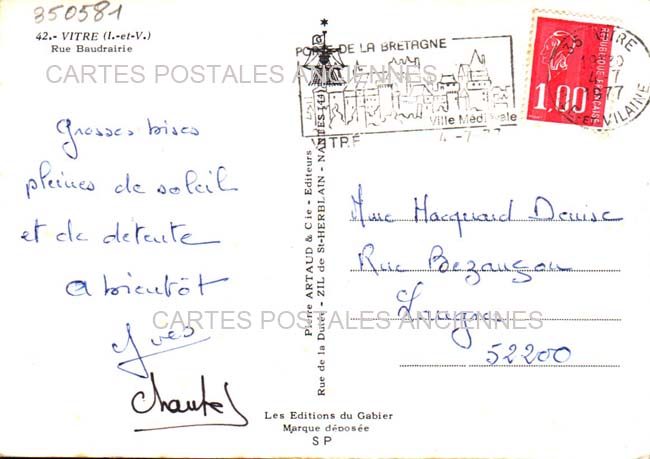 350581
42.- VITRE (I.-et-V.)
Rue Baudrairie
CARTES POSTALES ANCIENNES
Grosses bises
pleines de soleil
et de détente
A bientôt
Yves
Chantal
PORTE DE LA BRETAGNE
Ville Médiévale
VITRE
4-7-77
35 VITRE
4-7
1977
ET-VILAINE
REPUBLIQUE FRANÇAISE
1,00
Pierre ARTAUD & Cie - Editeurs
Rue de la Durée - ZIL de St-HERBLAIN - NANTES (44)
Mme Hacquard Denise
Rue Bezançon
Langres
52200
CARTES POSTALES ANCIENNES
Les Editions du Gabier
Marque déposée
SP